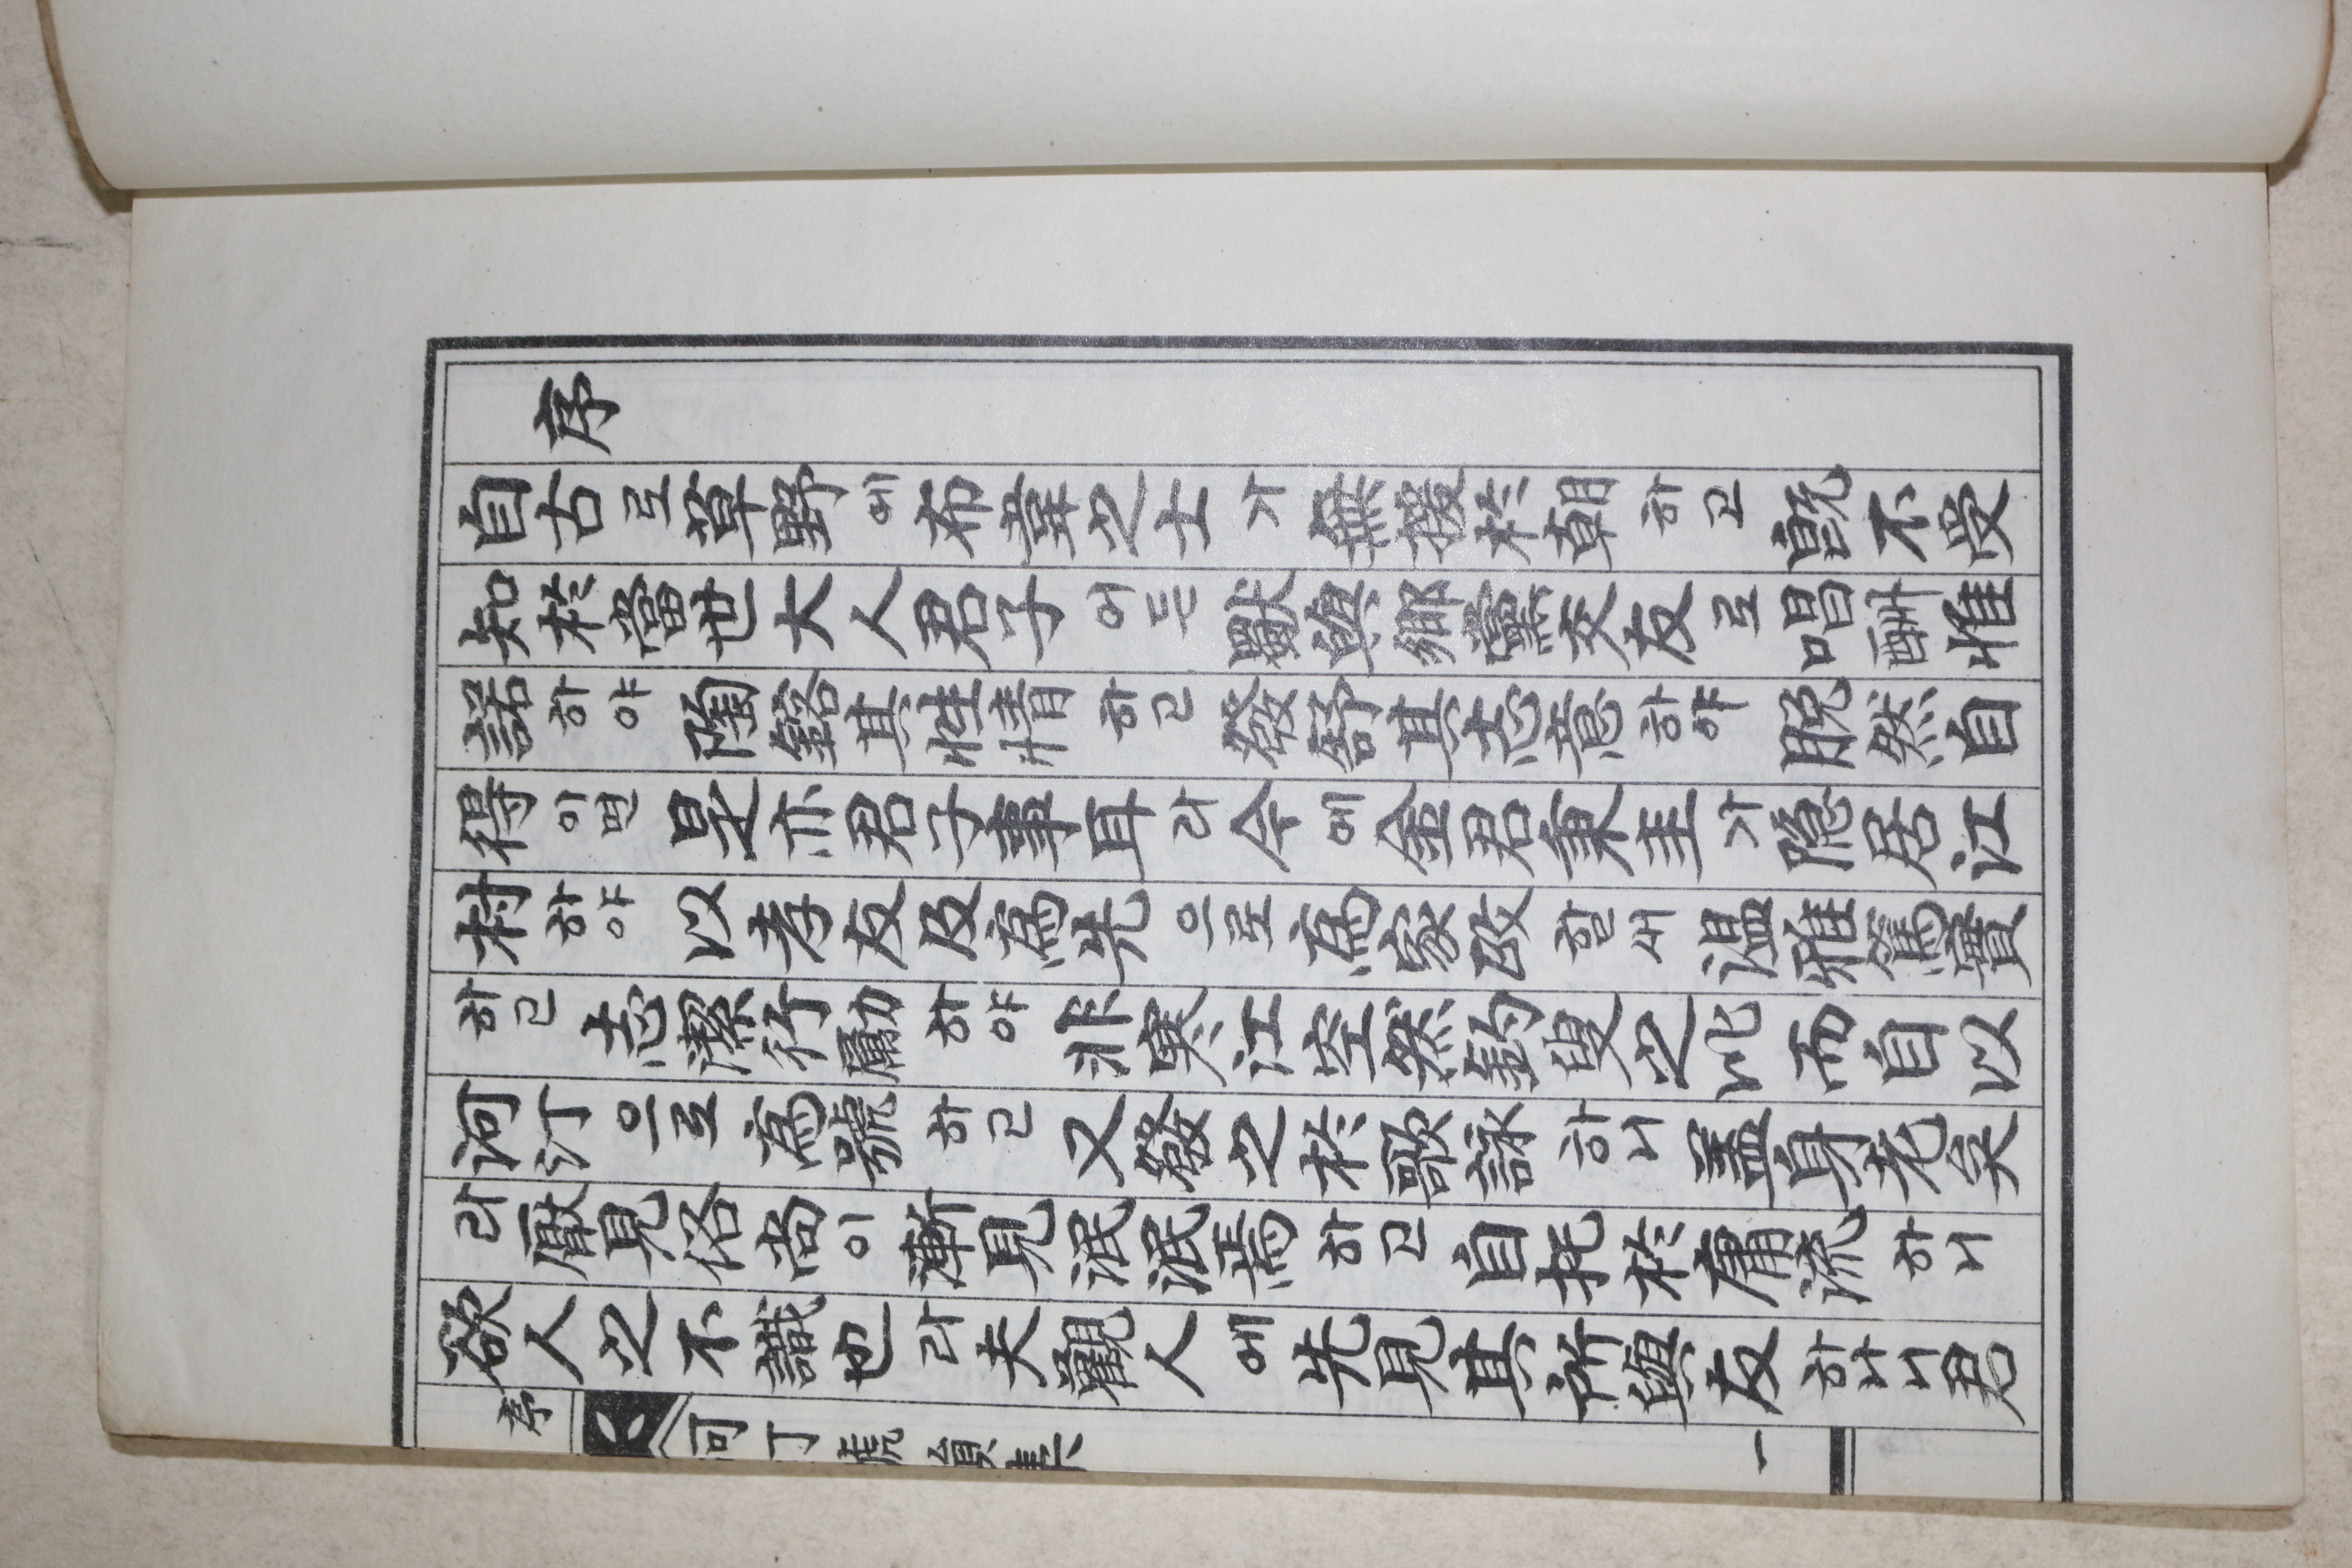 序
自古로草野에布韋之士가無援於朝하고旣不受
知於當世大人君子어든獸與鄉黨交友로唱酬惟
諾하야陶鎔其性情하고發舒其志意하야脫然自
得이면是亦君子事耳라今에金君秉圭가隱居江
村하야以孝友及爲先으로爲家政할새溫雅篤實
하고志潔行勵하야非寒江空然釣叟之比而自以
河汀으로爲號하고又發之於歌詠하니盖身老矣
라厭見俗尚이漸見泯泯焉하고自托於庸流하니
欲人之不識也라夫觀人에先見其所與友하나니君
序 河汀號韻集 一